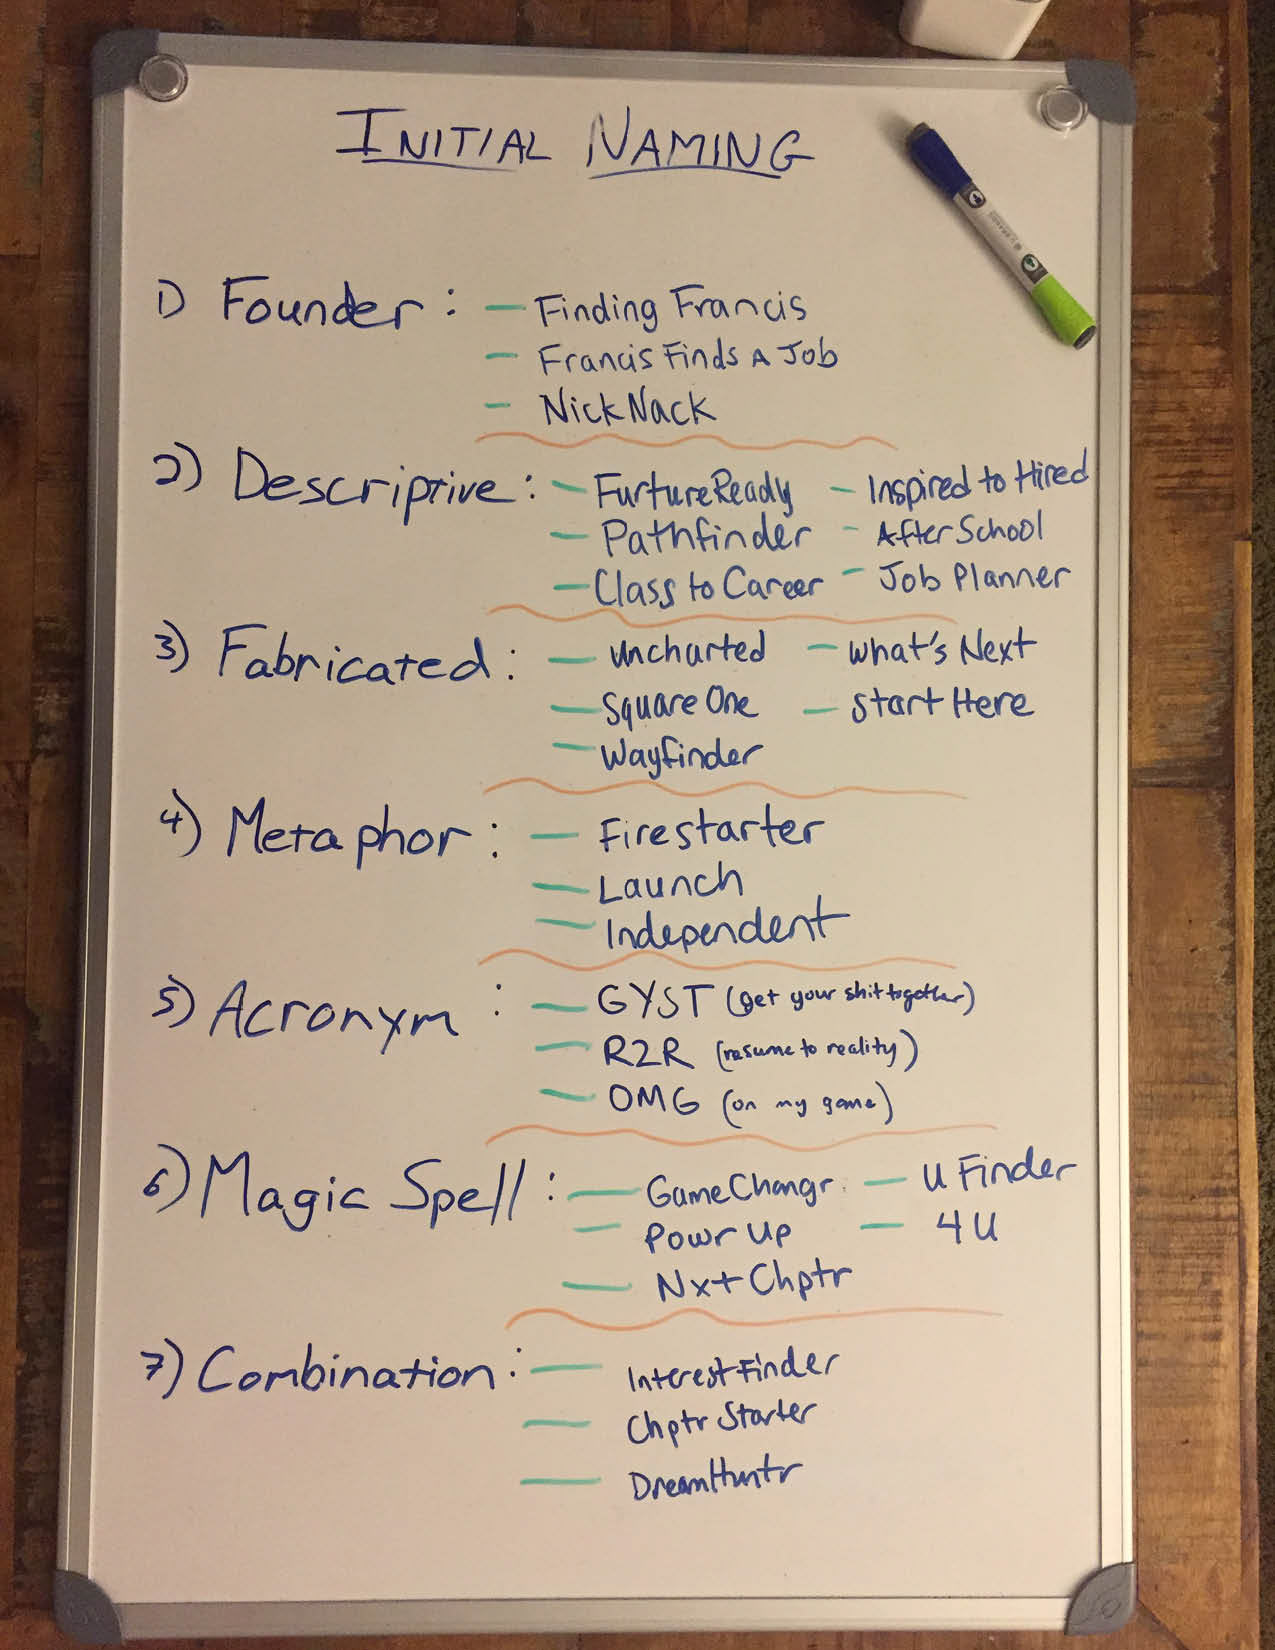 INITIAL NAMING
1) Founder : – Finding Francis
– Francis Finds A Job
– NickNack
2) Descriptive : – FurtureReady – Inspired to Hired
– Pathfinder – AfterSchool
– Class to Career – Job Planner
3) Fabricated : – Uncharted – What's Next
– Square One – Start Here
– Wayfinder
4) Metaphor : – Firestarter
– Launch
– Independent
5) Acronym : – GYST (get your shit together)
– R2R (resume to reality)
– OMG (on my game)
6) Magic Spell : – GameChangr – U Finder
– Powr Up – 4 U
– Nxt Chptr
7) Combination : – InterestFinder
– Chptr Starter
– DreamHuntr